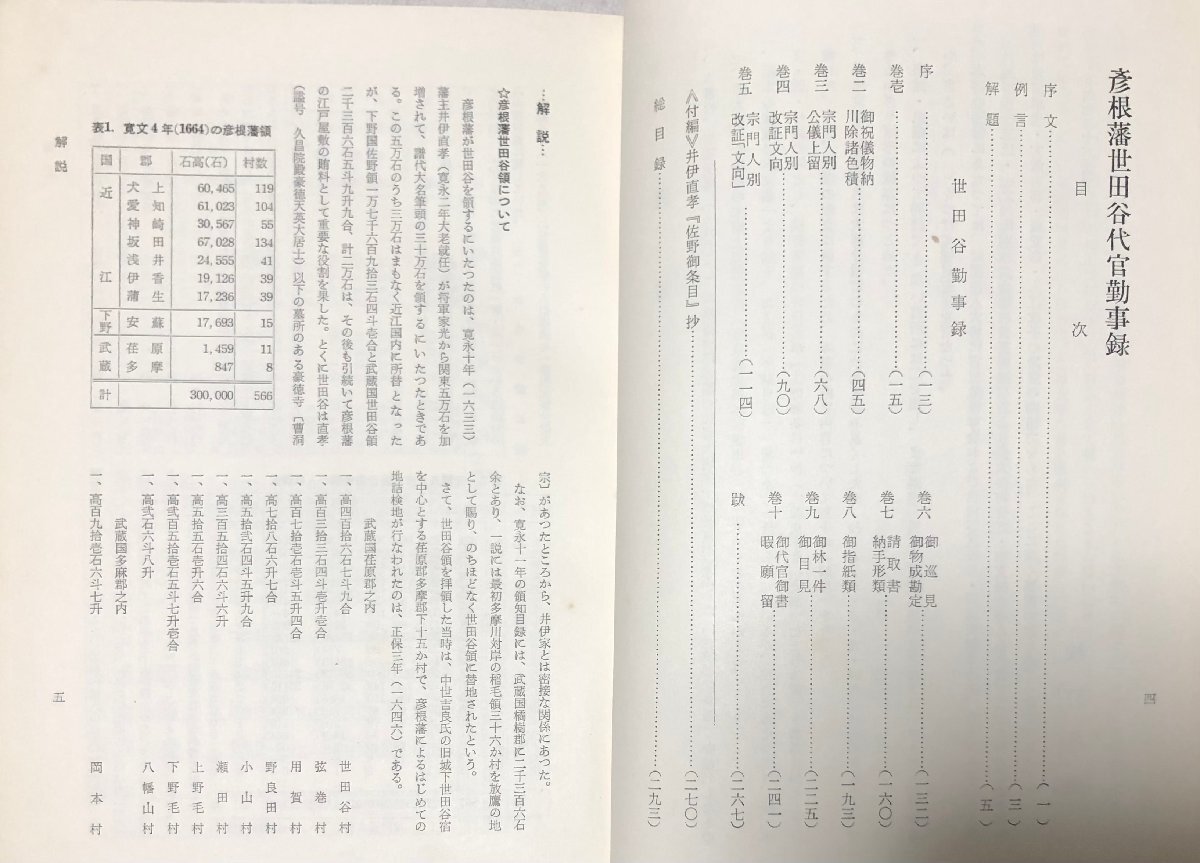 彥根藩世田谷代官勤事録
目次
序文……(一)
例言……(三)
解題……(五)
世田谷勤事録
序……(一三)
巻壱……(一五)
巻二 御祝儀物納 川除諸色積……(四五)
巻三 宗門人別 公儀上留……(六八)
巻四 宗門人別 改証文向……(九〇)
巻五 宗門人別 改証「文向」……(一一四)
巻六 御巡見 御物成勘定……(一三二)
巻七 請取書 納手形類……(一六〇)
巻八 御指紙類……(一九三)
巻九 御林一件 御目見……(二二五)
巻十 御代官御書 暇願留……(二四一)
跋……(二六七)
≪付編≫井伊直孝『佐野御条目』抄……(二七〇)
総目録……(二九三)
四
…解説…
☆彦根藩世田谷領について
彦根藩が世田谷を領するにいたつたのは、寛永十年(一六三三)
藩主井伊直孝(寛永二年大老就任)が将軍家光から関東五万石を加
増されて、譜代大名筆頭の三十万石を領するにいたつたときであ
る。この五万石のうち三万石はまもなく近江国内に所替となった
が、下野国佐野領一万七千六百九拾三石四斗壱合と武蔵国世田谷領
二千三百六石五斗九升九合、計二万石は、その後も引続いて彦根藩
の江戸屋敷の賄料として重要な役割を果した。とくに世田谷は直孝
(諡号 久昌院殿豪徳天英大居士)以下の墓所のある豪徳寺〔曹洞
表1. 寛文4年(1664)の彦根藩領
国 郡 石高(石) 村数
近江 犬上 60,465 119
愛知 61,023 104
神崎 30,567 55
坂田 67,028 134
浅井 24,555 41
伊香 19,126 39
蒲生 17,236 39
下野 安蘇 17,693 15
武蔵 荏原 1,459 11
多摩 847 8
計 300,000 566
宗〕があつたところから、井伊家とは密接な関係にあつた。
なお、寛永十一年の領知目録には、武蔵国橘樹郡に二千三百六石
余とあり、一説には最初多摩川対岸の稲毛領三十六か村を放鷹の地
として賜り、のちほどなく世田谷領に替地されたという。
さて、世田谷領を拝領した当時は、中世吉良氏の旧城下世田谷宿
を中心とする荏原郡多摩郡下十五か村で、彦根藩によるはじめての
地詰検地が行なわれたのは、正保三年(一六四六)である。
武蔵国荏原郡之内
一、高四百拾六石七斗九合 世田谷村
一、高百三拾三石四斗壱升壱合 弦巻村
一、高百七拾壱石壱斗五升四合 用賀村
一、高七拾八石六升七合 野良田村
一、高五拾弐石四斗五升九合 小山村
一、高三百五拾四石六斗六升 瀬田村
一、高五拾五石壱升六合 上野毛村
一、高弐百五拾壱石五斗七升壱合 下野毛村
一、高弐石六斗八升 八幡山村
武蔵国多麻郡之内
一、高百九拾壱石六斗七升 岡本村
解説
五